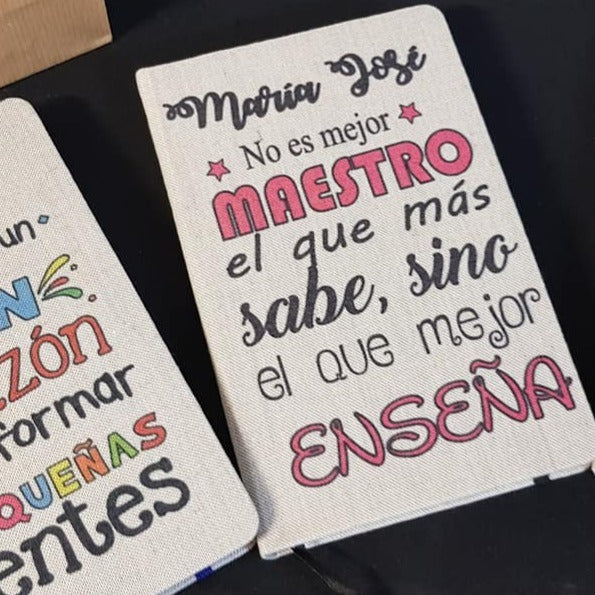 María José
No es mejor
MAESTRO
el que más
sabe, sino
el que mejor
ENSEÑA
un
zón
formar
QUEÑAS
entes